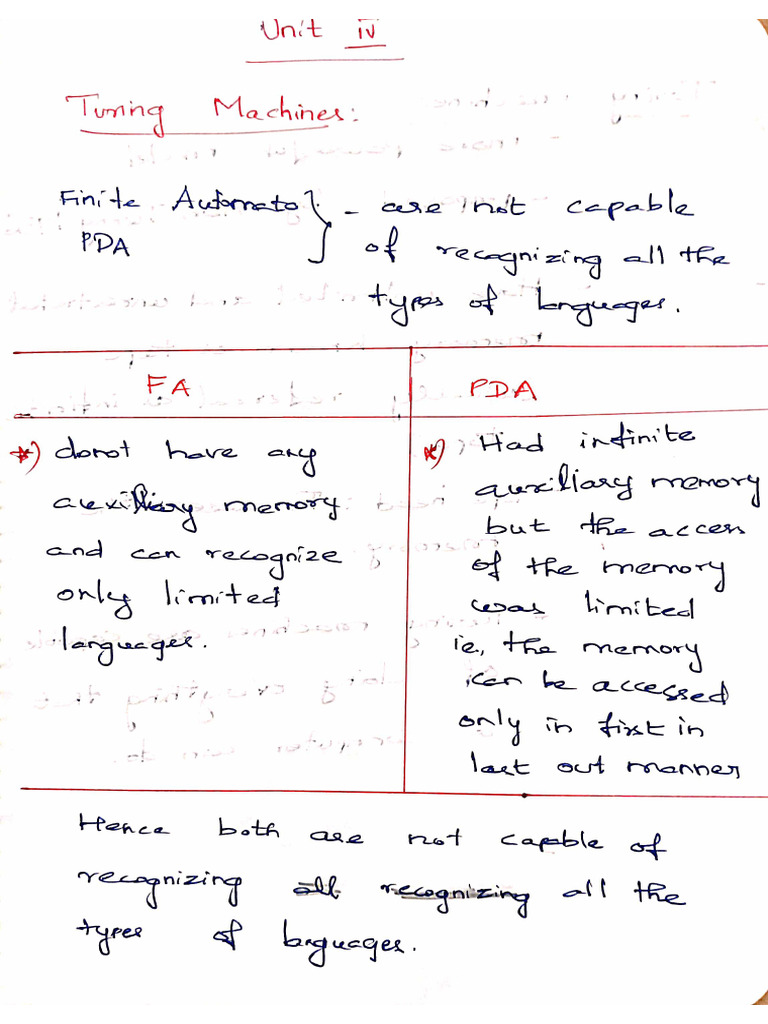 Unit iv
Turing Machines:
Finite Automata } - are not capable
PDA } of recognizing all the
types of languages.
FA
PDA
*) donot have any
auxiliary memory
and can recognize
only limited
languages.
*) Had infinite
auxiliary memory
but the access
of the memory
was limited
ie., the memory
can be accessed
only in first in
last out manner
Hence both are not capable of
recognizing all recognizing all the
types of languages.